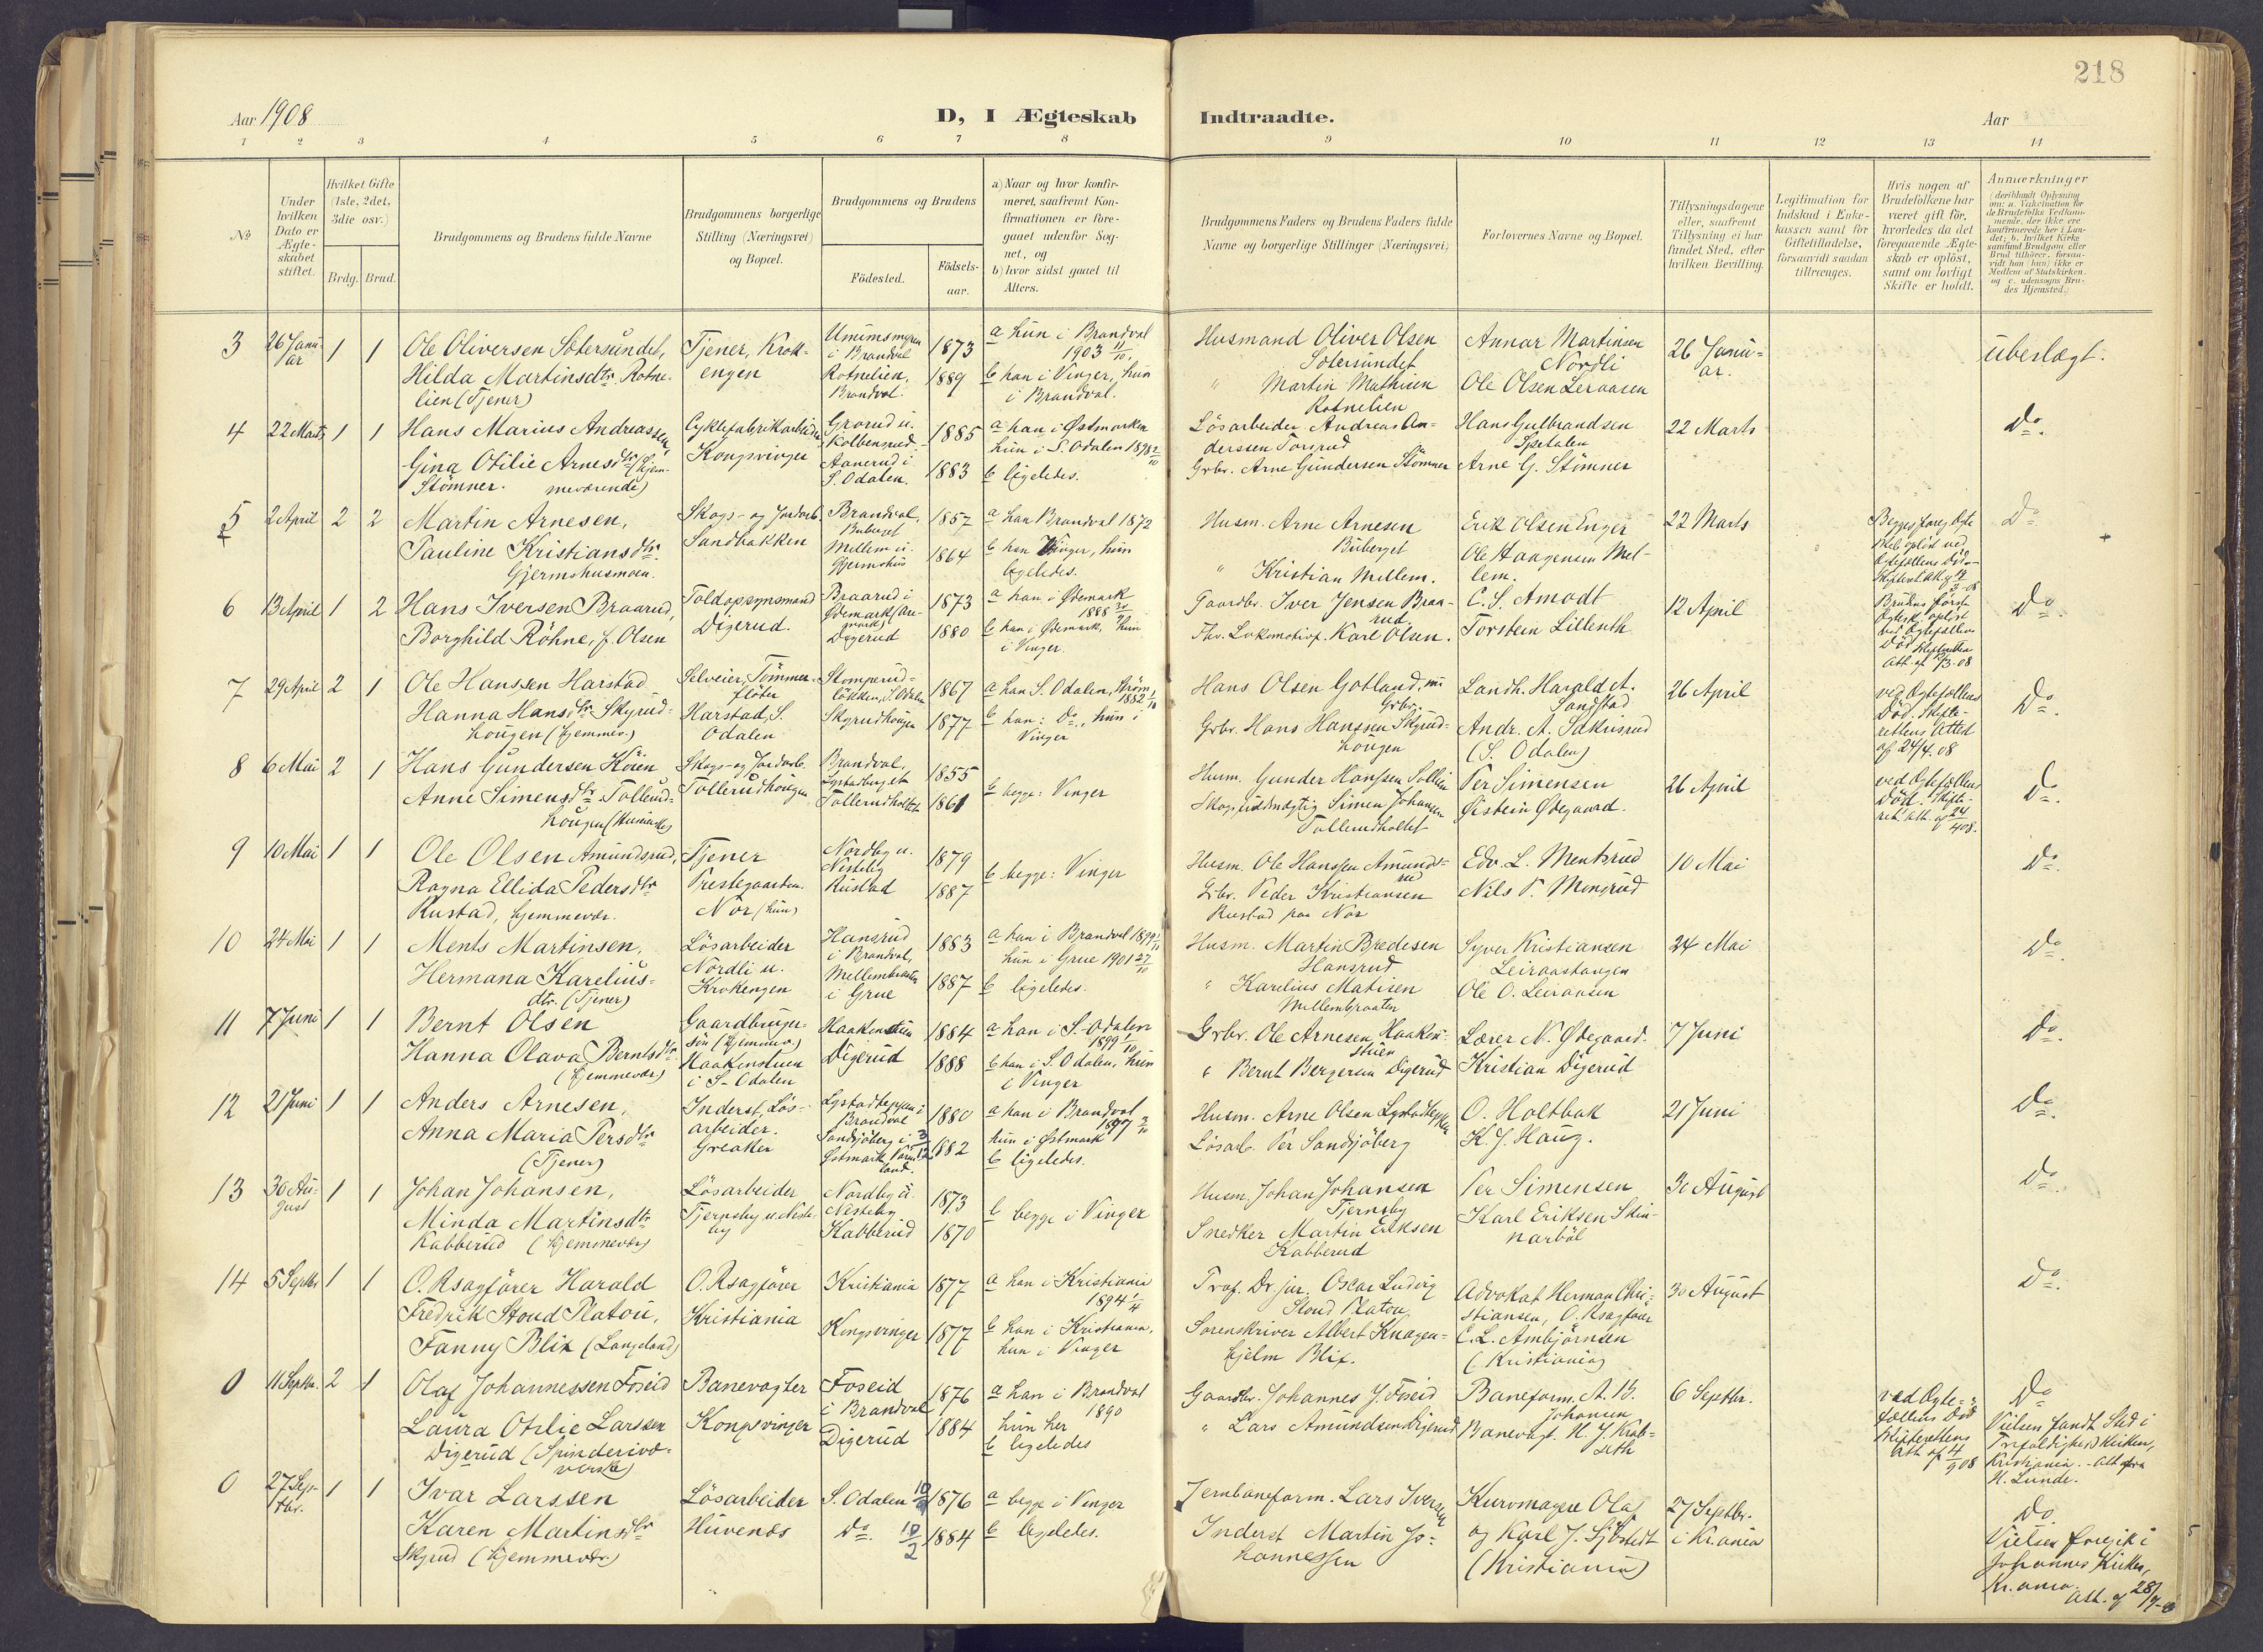 218
Aar 1908
D, I Ægteskab Indtraadte.
Aar
1 2 3 4 5 6 7 8 9 10 11 12 13 14
No
Under hvilken Dato er Ægteskabet stiftet.
Hvilket Gifte (1ste, 2det, 3die osv.)
Brdg. Brud.
Brudgommens og Brudens fulde Navne
Brudgommens borgerlige Stilling (Næringsvei) og Bopæl.
Brudgommens og Brudens
Fødested.
Fødselsaar.
a) Naar og hvor konfirmeret, saafremt Konfirmationen er foregaaet udenfor Sognet, og
b) hvor sidst gaaet til Alters.
Brudgommens Faders og Brudens Faders fulde Navne og borgerlige Stillinger (Næringsvei)
Forlovernes Navne og Bopæl.
Tillysningsdagene eller, saafremt Tillysning ei har fundet Sted, efter hvilken Bevilling.
Legitimation for Indskud i Enkekassen samt for Giftetilladelse, forsaavidt saadan tiltrænges.
Hvis nogen af Brudefolkene har været gift før, hvorledes da det foregaaende Ægteskab er opløst, samt om lovligt Skifte er holdt.
Anmærkninger
3 26 Januar 1 1
Ole Oliversen Sotersundet,
Hilda Martinsdtr Rotnelien (Tjener)
Tjener, Krokengen
i Brandval 1873
Rotnelien, Brandval. 1889
a hun i Brandval 1903 11/10.
b han i Vinger, hun i Brandval.
Husmand Oliver Olsen Sotersundet
" Martin Mathisen Rotnelien
Annar Martinsen Nordli
Ole Olsen Leraasen
26 Januar.
ubeslægt.
4 22 Marts 1 1
Hans Marius Andreassen
Gina Otilie Arnesdtr (hjemmeværende) Stømner.
Cyklefabrikarbeider Kongsvinger
Grorud u. Kolbensrud 1885
Aanerud i S. Odalen. 1883
a han i Østmarken hun i S. Odalen 1898 2/10
b ligeledes.
Løsarbeider Andreas Anderssen Torsrud
Grbr. Arne Gundersen Stømner
Hans Gulbrandsen Spetalen
Arne G. Stømner
22 Marts
Do.
5 2 April 2 2
Martin Arnesen,
Pauline Kristiansdtr Gjermshusmoen.
Skogs- og Jordarb. Sandbakken
Brandval, Buberget 1857
Mellem u. Gjermshus 1864
a han Brandval 1872
b han Vinger, hun ligeledes.
Husm. Arne Arnesen Buberget
" Kristian Mellem.
Erik Olsen Enger
Ole Haagensen Mellem.
22 Marts
Do
6 13 April 1 2
Hans Iversen Braarud,
Borghild Röhne, f. Olsen
Toldopsynsmand Digerud.
Braarud i Ødemark 1873
Digerud 1880
a han i Ødemark 1888
b han i Ødemark, hun i Vinger.
Gaardbr. Iver Jensen Braarud.
Fhv. Lokomotivf. Karl Olsen.
C. S. Amodt
Torstein Lillenth
12 April
Do.
7 29 April 2 1
Ole Hanssen Harstad
Hanna Hansdtr Skyrudhougen (hjemmev.)
Selveier, Tømmerfløter Harstad, S. Odalen
Stomperudløkken, S. Odalen 1867
Skyrudhougen 1877
a han S. Odalen, Strøm 1882
b han: Do., hun i Vinger
Hans Olsen Gotland, nu Grbr.
Grbr. Hans Hanssen Skyrudhougen
Landh. Harald A. Sandstad
Andr. A. Sakrisrud (S. Odalen)
26 April
ved Ægtefællens Død. Skifterettens Attest af 24/4.08
Do.
8 6 Mai 2 1
Hans Gundersen Køien
Anne Simensdtr Tollerudhougen
Skogs- og Jordarb. Tollerudhougen
Brandval, Lystadberget 1855
Tollerudholtet 1861
b begge: Vinger
Husm. Gunder Hanssen Sollien
Skogfuldmægtig Simen Johansen Tollerudholtet
Per Simensen
Øistein Ødegaard.
26 April
ved Ægtefællens Død. Skifteret. Att. af 24/4 08.
Do.
9 10 Mai 1 1
Ole Olsen Amundsrud,
Ragna Ellida Pedersdtr Rustad, hjemmevær.
Tjener Prestegaarden. Nor (hun)
Nordby u. Nesteby 1879
Rustad 1887
b begge: Vinger
Husm. Ole Hanssen Amundsrud
Grbr. Peder Kristiansen Rustad paa Nor
Edv. L. Mentsrud
Nils P. Monsrud
10 Mai
Do.
10 24 Mai 1 1
Ments Martinsen,
Hermana Kareliusdtr. (Tjener)
Løsarbeider Nordli u. Krokengen
Hansrud i Brandval, 1883
Mellembraaten i Grue 1887
a han i Brandval 1899
hun i Grue 1901 27/10
b ligeledes.
Husm. Martin Bredesen Hansrud
" Karelius Matisen Mellembraaten
Syver Kristiansen Leiraastangen
Ole O. Leiraasen
24 Mai
Do.
11 7 Juni 1 1
Bernt Olsen
Hanna Olava Berntsdtr (hjemmevær)
Gaardbrugersøn (hjemmev.) Haakenstuen i S. Odalen
Haakenstuen 1884
Digerud 1888
a han i S. Odalen 1899
b han i S. Odalen, hun i Vinger
Grbr. Ole Arnesen Haakenstuen
" Bernt Bergersen Digerud
Lærer N. Ødegaard.
Kristian Digerud
7 Juni
Do.
12 21 Juni 1 1
Anders Arnesen,
Anna Maria Persdtr (Tjener)
Inderst, Løsarbeider. Greaker
Brandval 1880
Sandsjöberg i Østmark, Värmland. 1882
a han i Brandval 1897
hun i Østmark
b ligeledes.
Husm. Arne Olsen
Løsarb. Per Sandsjöberg
O. Holtbak
K. J. Haug.
21 Juni
Do.
13 30 August 1 1
Johan Johansen,
Minda Martinsdtr Kabberud (hjemmevær)
Løsarbeider Tjernsby u. Nesteby
Nordby u. Nesteby 1873
Kabberud 1870
b begge i Vinger
Husm. Johan Johansen Tjernsby
Snedker Martin Eriksen Kabberud
Per Simensen
Karl Eriksen Skinnarbøl
30 August
Do.
14 5 Septbr 1 1
O.Rsagfører Harald Fredrik Stoud Platou,
Fanny Blix (Langeland)
O.Rsagfører Kristiania
Kristiania 1877
Kongsvinger 1877
a han i Kristiania 1894 1/4
b han i Kristiania, hun i Vinger
Prof. Dr. jur. Oscar Ludvig Stoud Platou
Sorenskriver Albert Knagenhjelm Blix.
Advokat Herman Christiansen, O.Rsagfører
C. L. Ambjørnsen (Kristiania)
30 August
Do.
0 11 Septbr. 2 1
Olaf Johannessen Foseid
Laura Otilie Larssen Digerud (Spinderiarverske)
Banevogter Kongsvinger
Foseid i Brandval 1876
Digerud 1884
a han i Brandval 1890
hun her
b ligeledes
Gaardbr. Johannes J. Foseid
" Lars Amundsen Digerud
Baneform. A. B. Johansen
Banevogt. H. J. Krabseth
6 Septbr.
ved Ægtefællens Død Skifterettens Att. af 4/9 08
Do
Vielsen fandt Sted i Trefoldigheds Kirken, Kristiania. - Att fra H. Lunde.
0 27 Septbr. 1 1
Ivar Larssen
Karen Martinsdtr Skyrud (hjemmevær)
Løsarbeider Huvenes
S. Odalen 1876
Do. 10/2 1884
a begge i Vinger
b ligeledes.
Jernbaneform. Lars Iversen
Inderst Martin Johannessen
Kurvmagere Olaf og Karl J. Sjöstedt (Kristiania)
27 Septbr. i Kr.ania
Do.
Vielsen foregik i Johannes Kirken, Kr.ania. Att. af 28/9-08